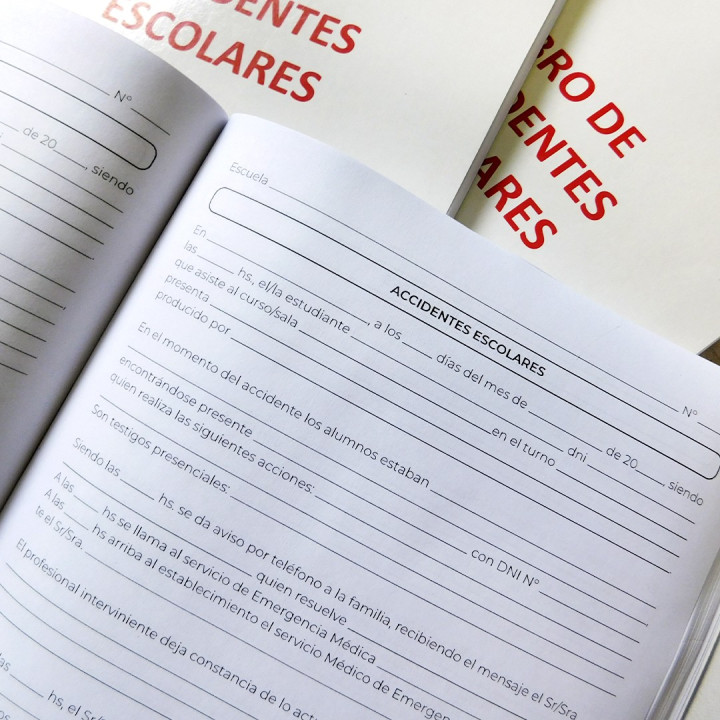 DENTES
ESCOLARES
BRO DE
DENTES
ARES
Nº
de 20____, siendo
Escuela
ACCIDENTES ESCOLARES
Nº
En____, a los____ días del mes de____ de 20____, siendo
las____ hs., el/la estudiante____ dni
que asiste al curso/sala____ en el turno
presenta
producido por
En el momento del accidente los alumnos estaban
encontrándose presente
quien realiza las siguientes acciones:
Son testigos presenciales:____ con DNI Nº
Siendo las____ hs. se da aviso por teléfono a la familia, recibiendo el mensaje el Sr/Sra
____ quien resuelve
A las____ hs se llama al servicio de Emergencia Médica
A las____ hs arriba al establecimiento el servicio Médico de Emergen
te el Sr/Sra.
El profesional interviniente deja constancia de lo act
las____ hs, el Sr/